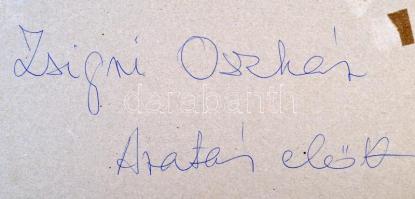 Zsigri Oszkár
darabanth
Aratás előtt